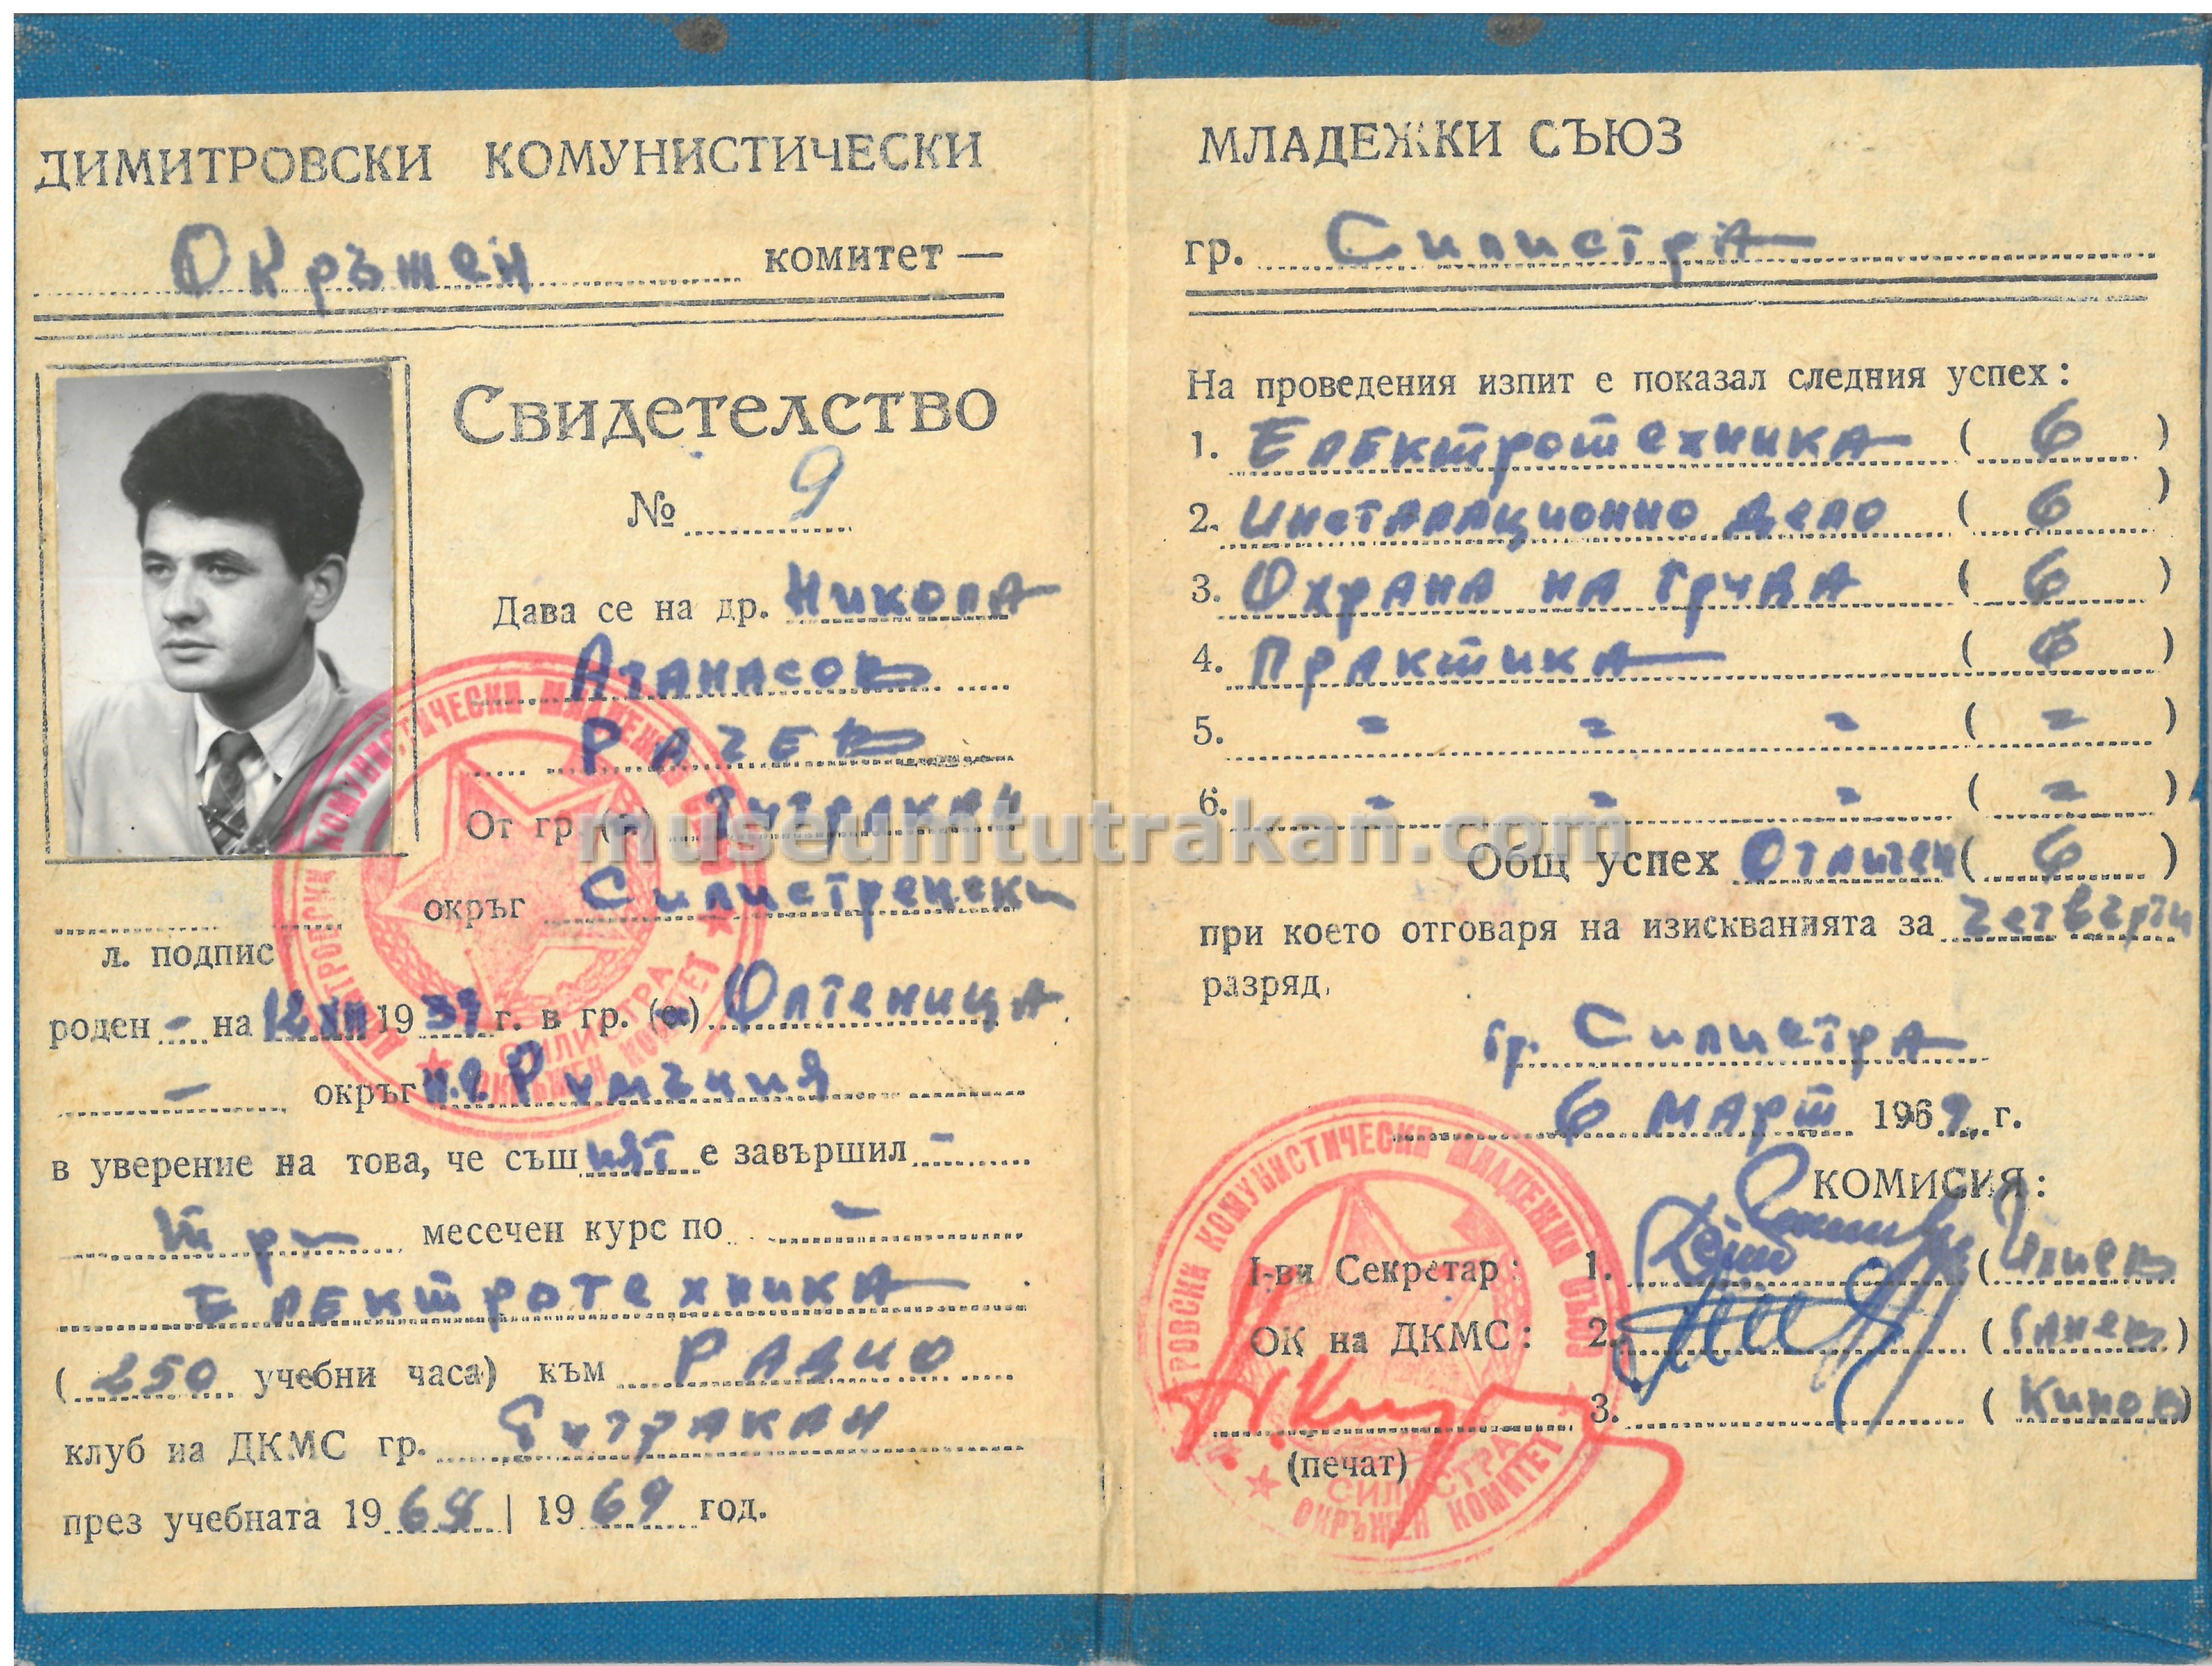 ДИМИТРОВСКИ КОМУНИСТИЧЕСКИ
Окръжен комитет —
Свидетелство
№ 9
Дава се на др. Никола
Атанасов
Рачев
От гр. (с) Тутракан
окръг Силистренски
л. подпис
роден - на 12 XII 1939 г. в гр. (с) Олтеница
- окръг Н.Р. Румъния
в уверение на това, че същият е завършил -
три месечен курс по -
Електротехника
(250 учебни часа) към Радио
клуб на ДКМС гр. Тутракан
през учебната 1968 | 1969 год.
МЛАДЕЖКИ СЪЮЗ
гр. Силистра
На проведения изпит е показал следния успех:
1. Електротехника (6)
2. Инсталационно дело (6)
3. Охрана на труда (6)
4. Практика (6)
5. = = = (=)
6. = = = (=)
Общ успех Отличен (6)
при което отговаря на изискванията за четвърти
разряд.
гр. Силистра
6 март 1969 г.
КОМИСИЯ:
I-ви Секретар: 1. (Илиев
ОК на ДКМС: 2. (Ганев)
3. (Кинов)
(печат)
ДИМИТРОВСКИ КОМУНИСТИЧЕСКИ МЛАДЕЖКИ СЪЮЗ
СИЛИСТРА
ОКРЪЖЕН КОМИТЕТ
ДИМИТРОВСКИ КОМУНИСТИЧЕСКИ МЛАДЕЖКИ СЪЮЗ
СИЛИСТРА
ОКРЪЖЕН КОМИТЕТ
museumtutrakan.com